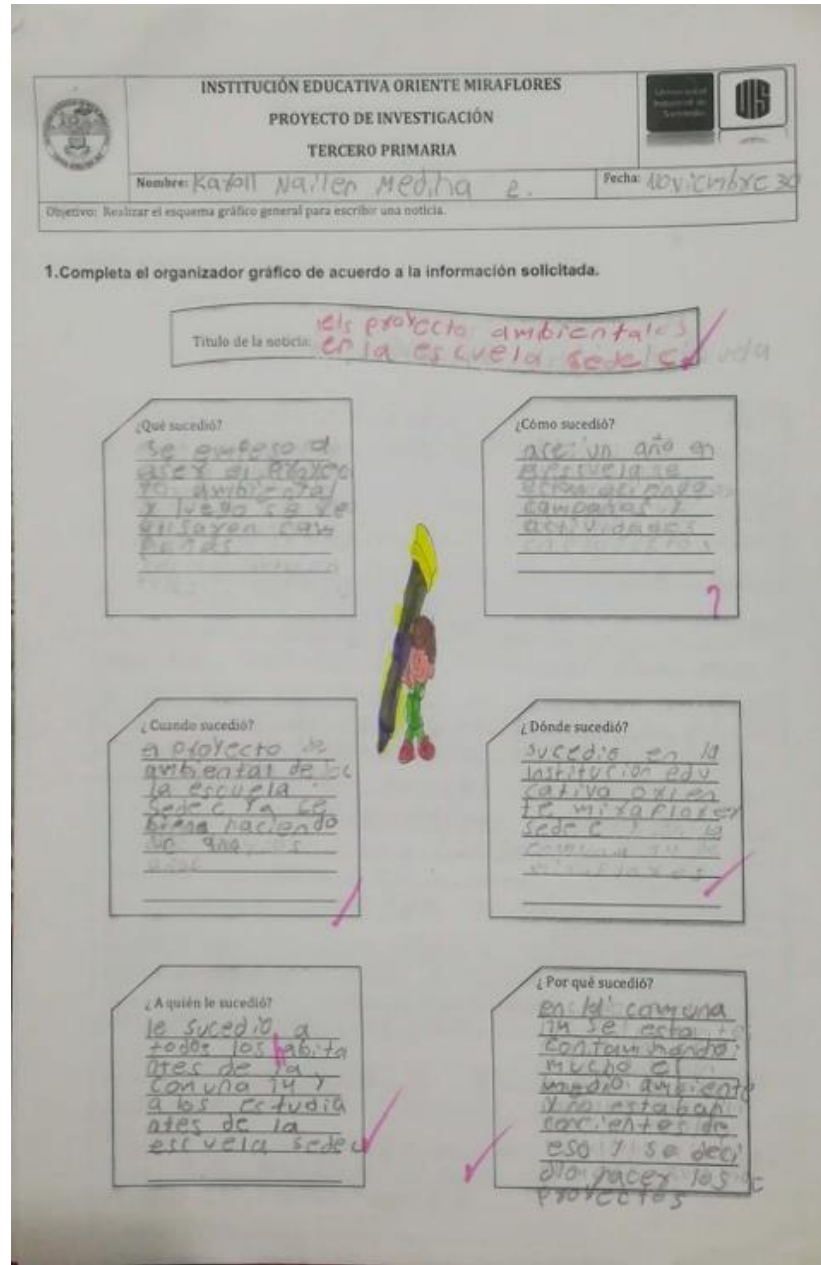 INSTITUCIÓN EDUCATIVA ORIENTE MIRAFLORES
PROYECTO DE INVESTIGACIÓN
TERCERO PRIMARIA
Universidad
Industrial de
Santander
UIS
Nombre: Karoll Nallen Medina e.
Fecha: Noviembre 30
Objetivo: Realizar el esquema gráfico general para escribir una noticia.
1.Completa el organizador gráfico de acuerdo a la información solicitada.
Titulo de la noticia: els proyecto ambientales
en la escuela sede c
¿Qué sucedió?
se empeso a
aser el proyec
to ambiental
y luego se re
alisaron cam
pañas
¿Cómo sucedió?
ace un año en
escuela se
campañas y
actividades
¿Cuando sucedió?
el proyecto
ambiental de
la escuela
sede c ya se
biene haciendo
año
¿Dónde sucedió?
sucedio en la
institucion edu
cativa orien
te miraflores
sede c
¿A quién le sucedió?
le sucedio a
todos los habita
ntes de la
comuna 14 y
a los estudia
ntes de la
escuela sede c
¿Por qué sucedió?
en la comuna
14 se esta
contaminando
mucho el
medio ambiente
y no estaban
concientes de
eso y se deci
dio hacer los
proyectos